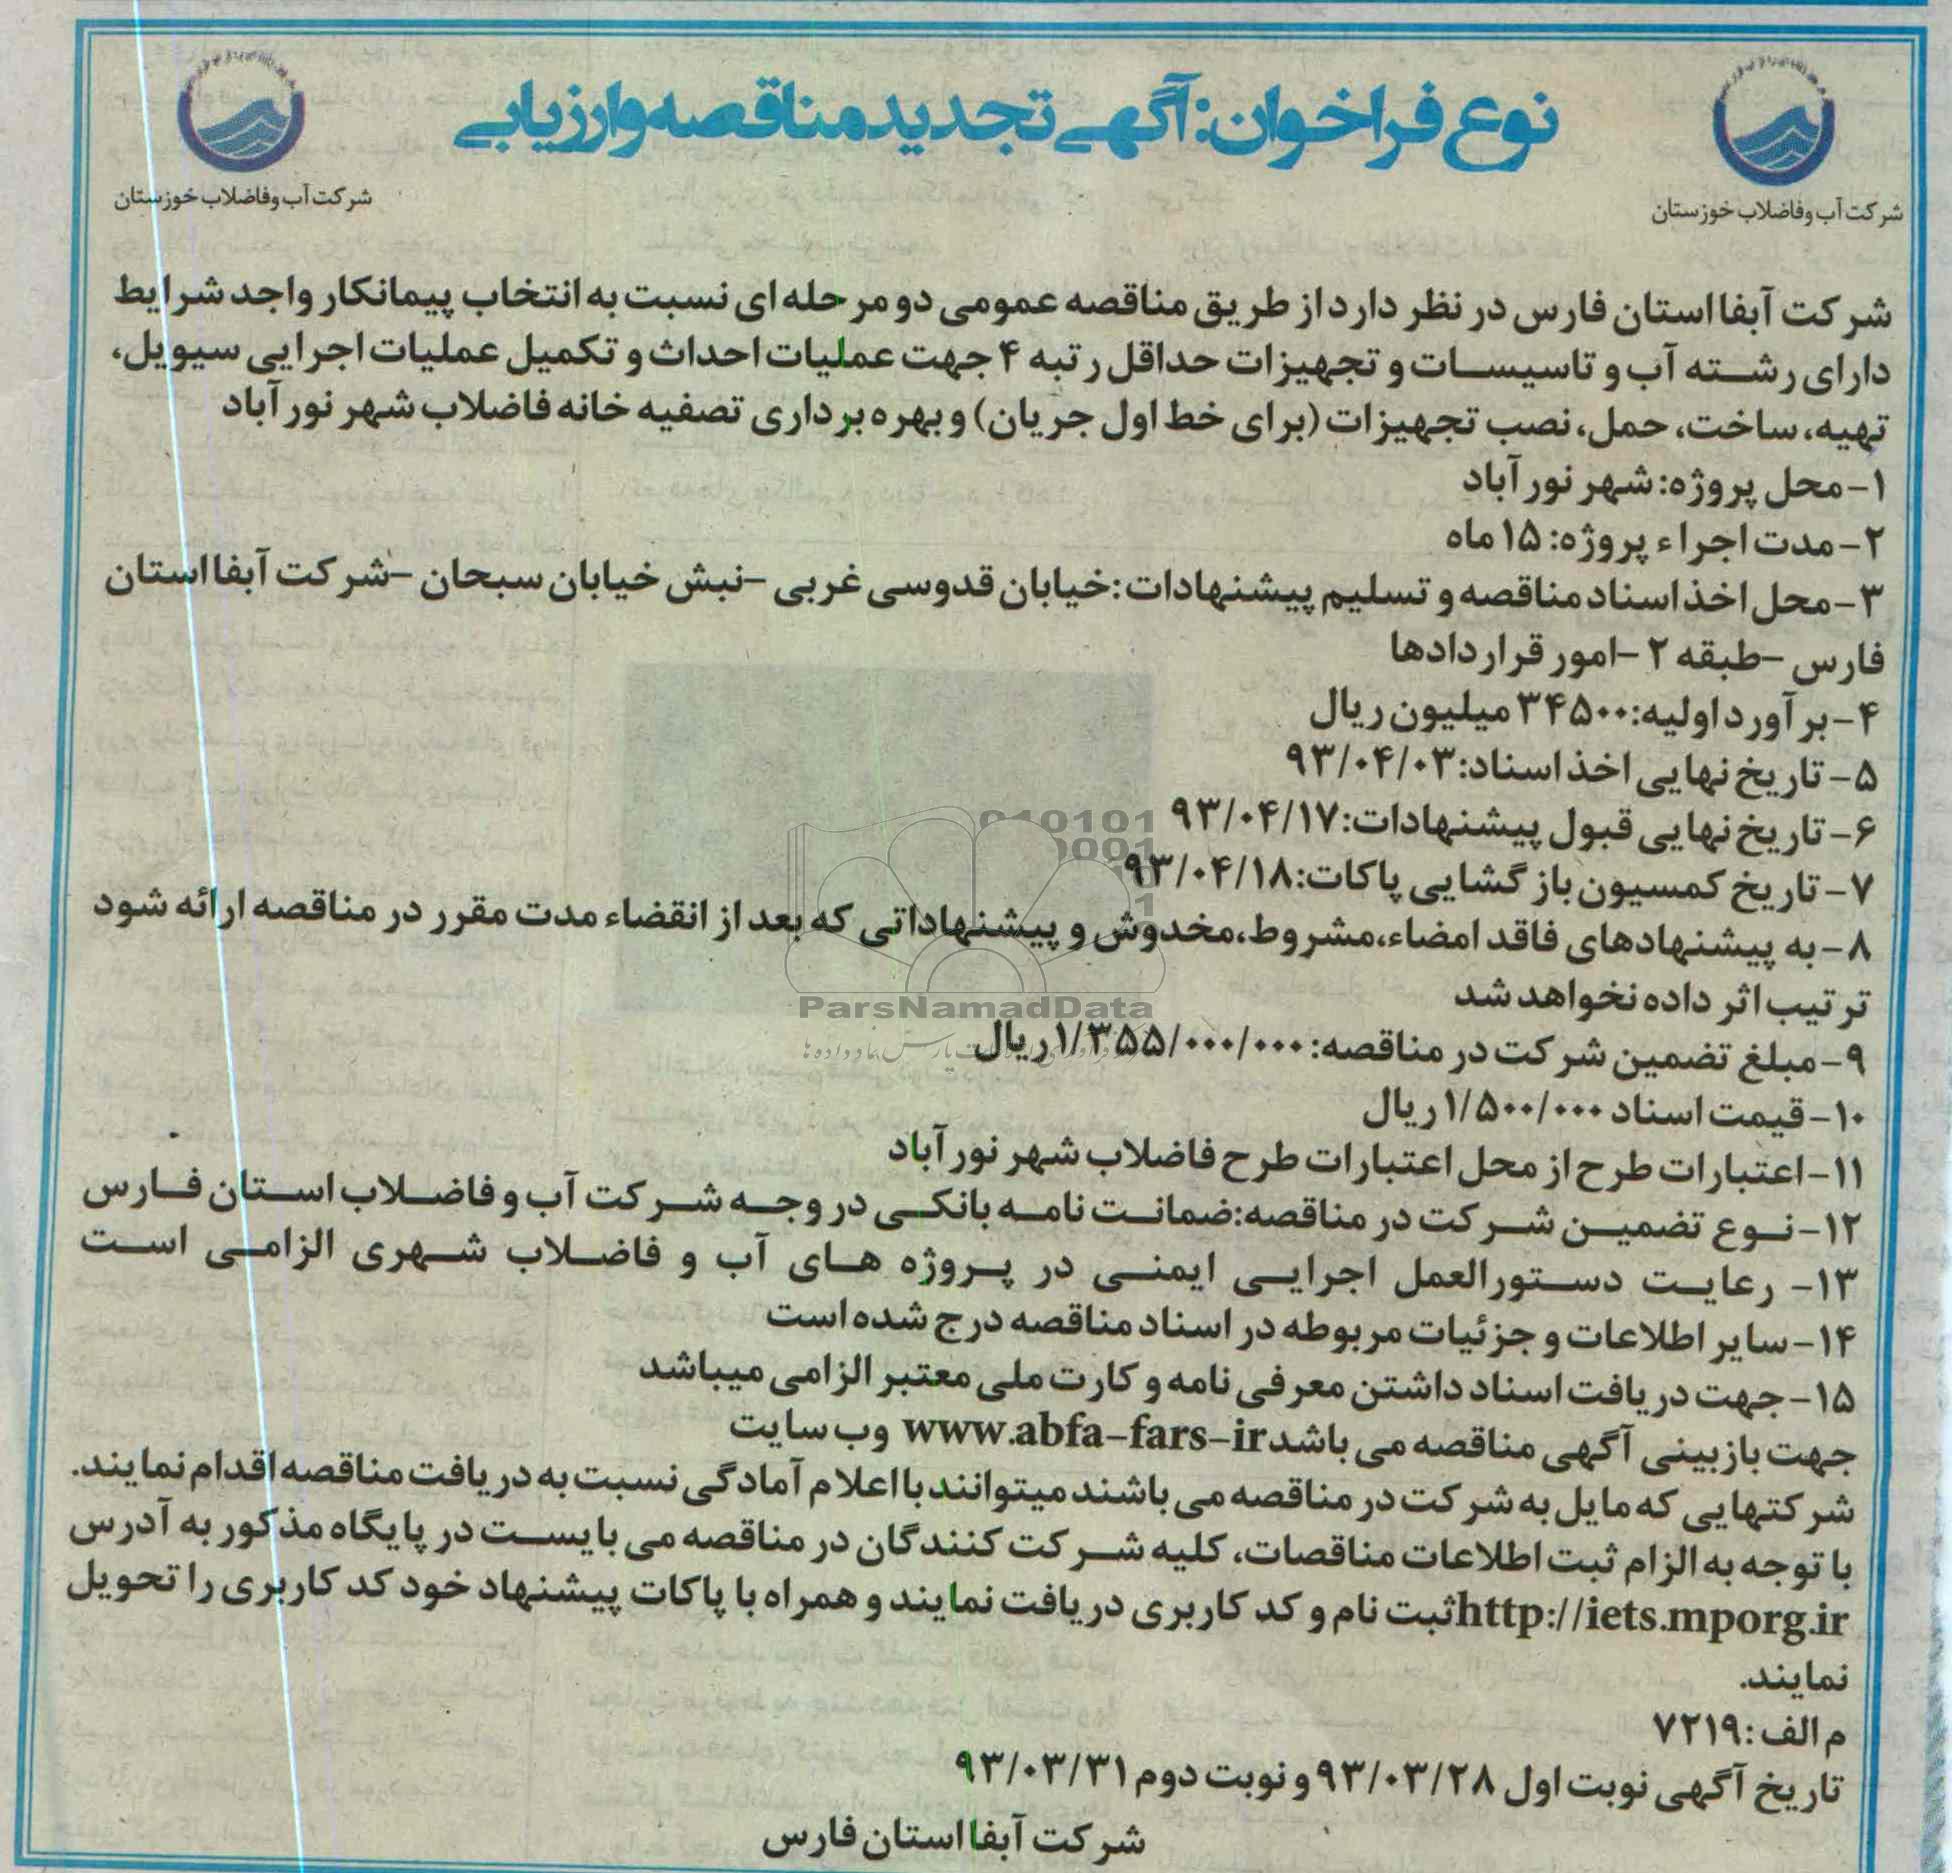 نوع فراخوان: آگهی تجدید مناقصه و ارزیابی
شرکت آب و فاضلاب خوزستان
شرکت آب و فاضلاب خوزستان
شرکت آبفا استان فارس در نظر دارد از طریق مناقصه عمومی دو مرحله ای نسبت به انتخاب پیمانکار واجد شرایط
دارای رشته آب و تاسیسات و تجهیزات حداقل رتبه ۴ جهت عملیات احداث و تکمیل عملیات اجرایی سیویل،
تهیه، ساخت، حمل، نصب تجهیزات (برای خط اول جریان) و بهره برداری تصفیه خانه فاضلاب شهر نورآباد
۱- محل پروژه: شهر نورآباد
۲- مدت اجراء پروژه: ۱۵ ماه
۳- محل اخذ اسناد مناقصه و تسلیم پیشنهادات: خیابان قدوسی غربی - نبش خیابان سبحان - شرکت آبفا استان
فارس - طبقه ۲ - امور قراردادها
۴- برآورد اولیه: ۳۴۵۰۰ میلیون ریال
۵- تاریخ نهایی اخذ اسناد: ۹۳/۰۴/۰۳
۶- تاریخ نهایی قبول پیشنهادات: ۹۳/۰۴/۱۷
۷- تاریخ کمسیون بازگشایی پاکات: ۹۳/۰۴/۱۸
۸- به پیشنهادهای فاقد امضاء، مشروط، مخدوش و پیشنهاداتی که بعد از انقضاء مدت مقرر در مناقصه ارائه شود
ترتیب اثر داده نخواهد شد
ParsNamadData
۹- مبلغ تضمین شرکت در مناقصه: ۱/۳۵۵/۰۰۰/۰۰۰ ریال
۱۰- قیمت اسناد ۱/۵۰۰/۰۰۰ ریال
۱۱- اعتبارات طرح از محل اعتبارات طرح فاضلاب شهر نورآباد
۱۲- نوع تضمین شرکت در مناقصه: ضمانت نامه بانکی در وجه شرکت آب و فاضلاب استان فارس
۱۳- رعایت دستورالعمل اجرایی ایمنی در پروژه های آب و فاضلاب شهری الزامی است
۱۴- سایر اطلاعات و جزئیات مربوطه در اسناد مناقصه درج شده است
۱۵- جهت دریافت اسناد داشتن معرفی نامه و کارت ملی معتبر الزامی میباشد
جهت بازبینی آگهی مناقصه می باشد www.abfa-fars-ir وب سایت
شرکتهایی که مایل به شرکت در مناقصه می باشند میتوانند با اعلام آمادگی نسبت به دریافت مناقصه اقدام نمایند.
با توجه به الزام ثبت اطلاعات مناقصات، کلیه شرکت کنندگان در مناقصه می بایست در پایگاه مذکور به آدرس
http://iets.mporg.ir ثبت نام و کد کاربری دریافت نمایند و همراه با پاکات پیشنهاد خود کد کاربری را تحویل
نمایند.
م الف: ۷۲۱۹
تاریخ آگهی نوبت اول ۹۳/۰۳/۲۸ و نوبت دوم ۹۳/۰۳/۳۱
شرکت آبفا استان فارس